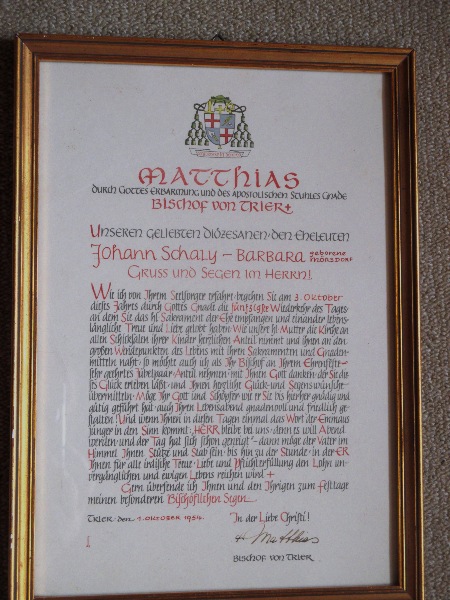 MATTHIAS
DURCH GOTTES ERBARMUNG UND DES APOSTOLISCHEN STUHLES GNADE
BISCHOF VON TRIER
UNSEREN GELIEBTEN DIÖZESANEN · DEN EHELEUTEN
Johann Schaly – BARBARA geborene MÖRSDORF
GRUSS UND SEGEN IM HERRN!
Wie ich von Ihrem Seelsorger erfahre · begehen Sie am 3. Oktober
dieses Jahres durch Gottes Gnade die fünfzigste Wiederkehr des Tages ·
an dem Sie das hl. Sakrament der Ehe empfangen und einander lebens-
längliche Treue und Liebe gelobt haben. Wie unsere hl. Mutter die Kirche an
allen Schicksalen ihrer Kinder herzlichen Anteil nimmt und ihnen an den
großen Wendepunkten des Lebens mit ihren Sakramenten und Gnaden-
mitteln naht · so möchte auch ich als Ihr Bischof an Ihrem Ehrenfeste ·
sehr geehrtes Jubelpaar · Anteil nehmen · mit Ihnen Gott danken · der Sie die-
ses Glück erleben läßt · und Ihnen herzliche Glück- und Segenswünsche
übermitteln. Möge Ihr Gott und Schöpfer · wie er Sie bis hierher gnädig und
gütig geführt hat · auch Ihren Lebensabend gnadenvoll und friedlich ge-
stalten. Und wenn Ihnen in diesen Tagen einmal das Wort der Emmaus
jünger in den Sinn kommt: HERR bleibe bei uns · denn es will Abend
werden · und der Tag hat sich schon geneigt – dann möge der Vater im
Himmel Ihnen Stütze und Stab sein · bis hin zu der Stunde · in der ER
Ihnen für alle irdische Treue · Liebe und Pflichterfüllung den Lohn un-
vergänglichen und ewigen Lebens reichen wird +
Gern übersende ich Ihnen und den Ihrigen zum Festtage
meinen besonderen Bischöflichen Segen
TRIER · den 1. OKTOBER 1954
In der Liebe Christi!
+ Matthias
BISCHOF VON TRIER